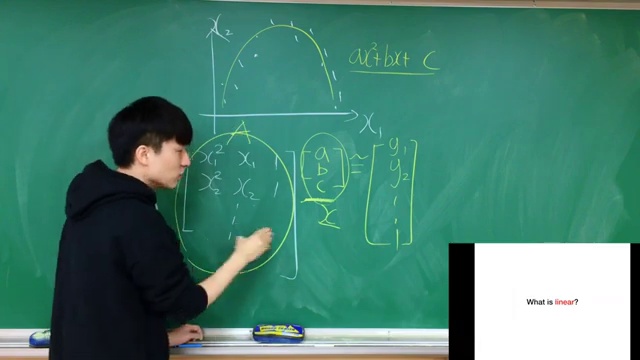 x₂
ax²+bx+ c
x₁
A
x₁² x₁ 1
x₂² x₂ 1
a
b
c
x
≈
y₁
y₂
What is linear?